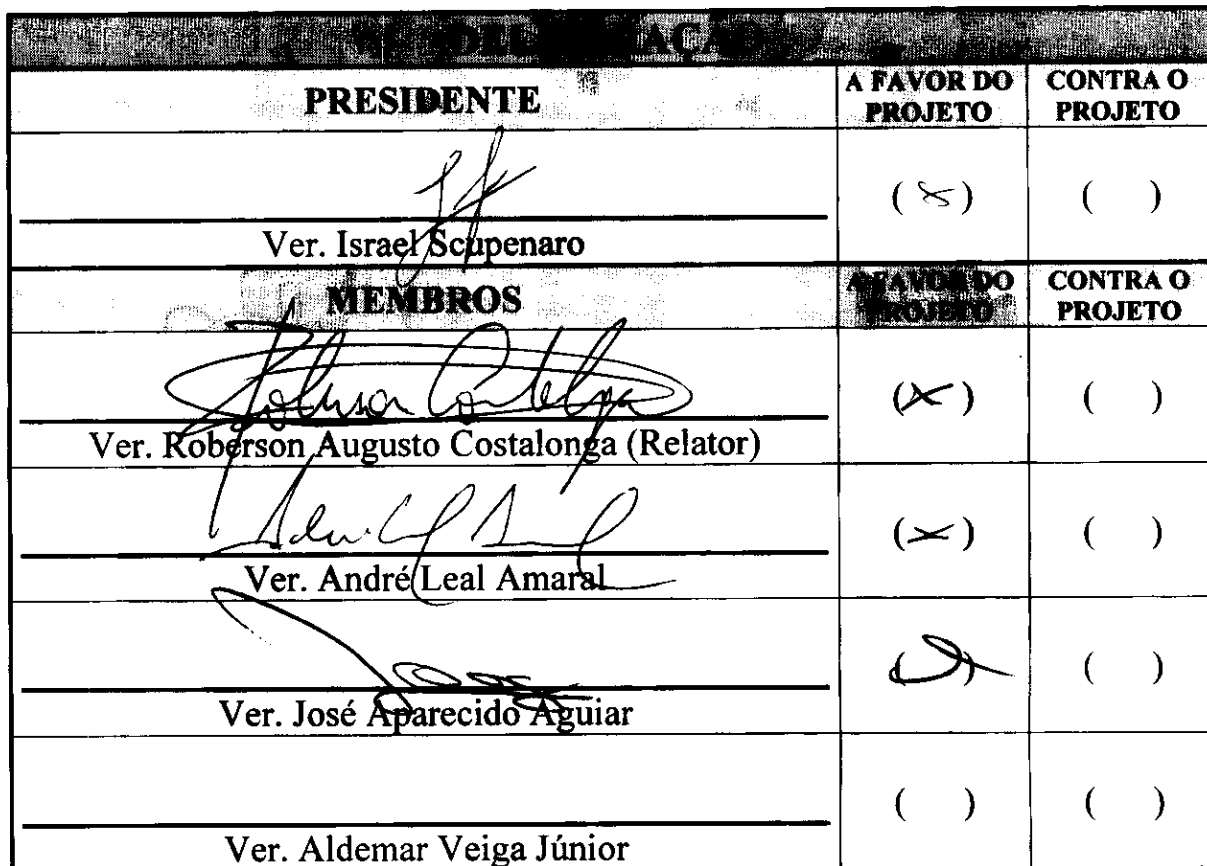 PRESIDENTE
A FAVOR DO PROJETO
CONTRA O PROJETO
( x )
(   )
Ver. Israel Scupenaro
MEMBROS
A FAVOR DO PROJETO
CONTRA O PROJETO
( x )
(   )
Ver. Roberson Augusto Costalonga (Relator)
( x )
(   )
Ver. André Leal Amaral
(   )
Ver. José Aparecido Aguiar
(   )
(   )
Ver. Aldemar Veiga Júnior